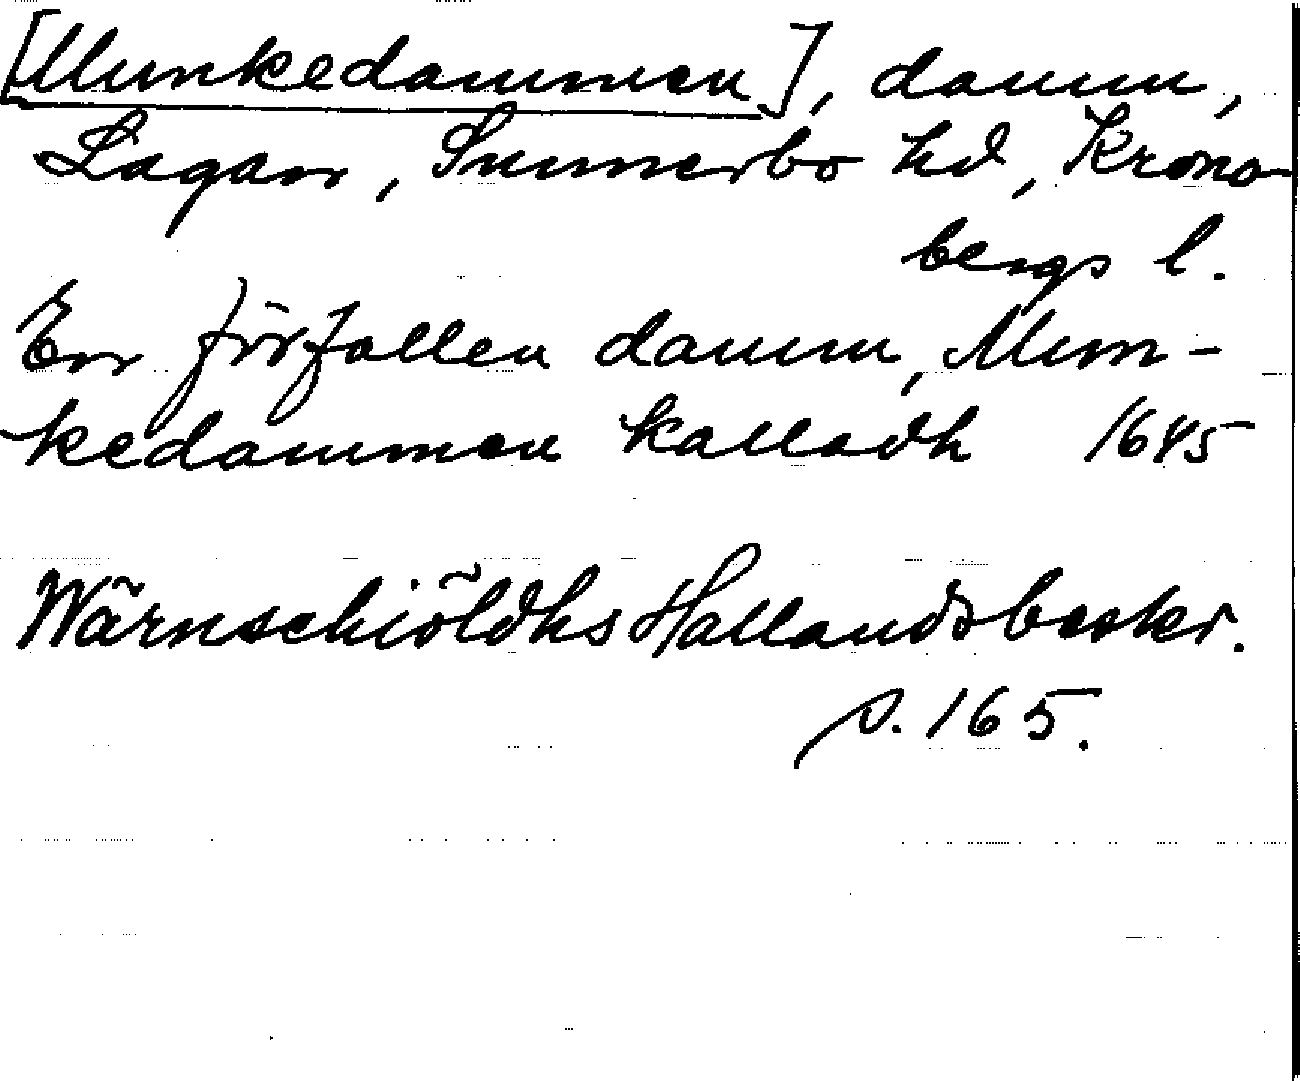 [Munkedammen], damm,
Lagan, Sunnerbo hd, Krono-
bergs l.
En förfallen damm, Mun-
kedammen kalladh 1645
Wärnschiöldhs Hallandsbeskr.
s. 165.